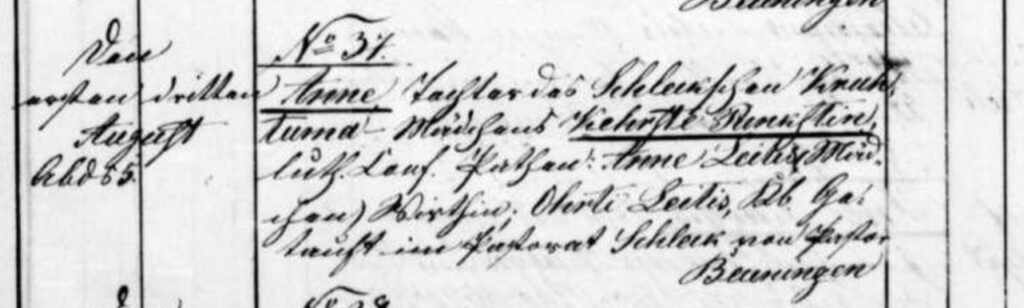 Beuningen
Den
ersten dritten
August
Abd 5 5.
No 37.
Anne Tochter des Schleckschen Kruh,
tuma- Mädchens Kehrste Punkstin,
luth. Conf. Pathen: Anne Leitis, Mäd-
chen) Wirthin; Ohrti Leitis, Kb. Ge-
tauft im Pastorat Schleck von Pastor
Beuningen